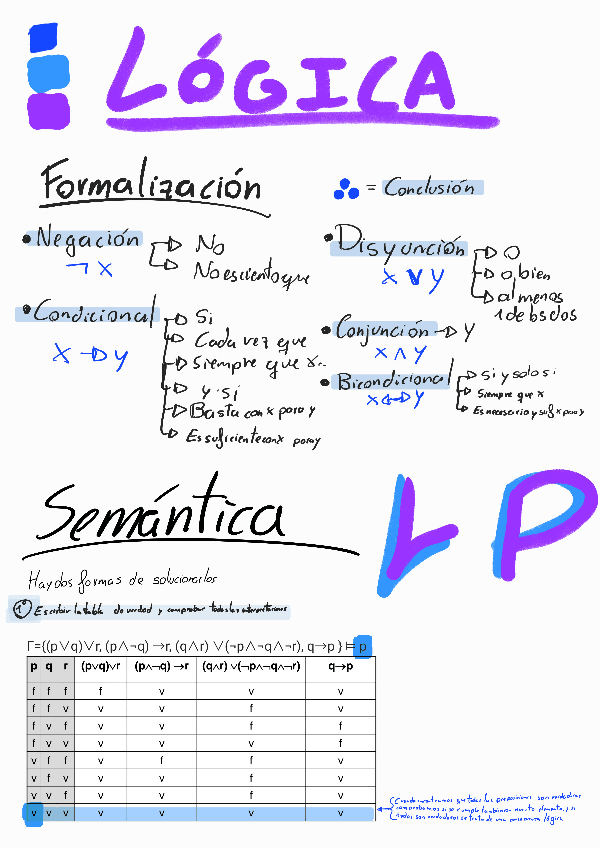 LÓGICA
Formalización
= Conclusión
• Negación
¬ x
No
No es cierto que
• Disyunción
x v y
O
o bien
al menos
1 de los dos
• Condicional
x → y
Si
Cada vez que
Siempre que x..
y si
Basta con x para y
Es suficiente con x para y
• Conjunción → y
x ∧ y
• Bicondicional
x ↔ y
Si y solo si
Siempre que x
Es necesario y suf x para y
Semántica
LP
Hay dos formas de solucionarlos
1º Escribir la tabla de verdad y comprobar todas las interpretaciones
Γ={(p∨q)∨r, (p∧¬q) →r, (q∧r) ∨(¬p∧¬q∧¬r), q→p } ⊨ p
p q r (p∨q)∨r (p∧¬q) →r (q∧r) ∨(¬p∧¬q∧¬r) q→p
f f f f v v v
f f v v v f v
f v f v v f f
f v v v v v f
v f f v f f v
v f v v v f v
v v f v v f v
v v v v v v v
Cuando encontramos que todas las proposiciones son verdaderas
comprobamos si se cumple también nuestro elemento, y si
todos son verdaderos se trata de una consecuencia lógica